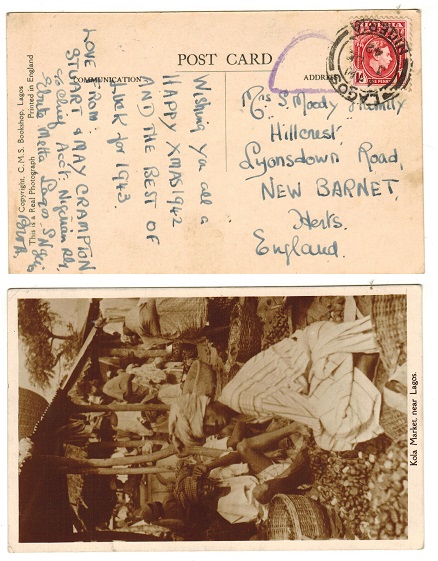 POST CARD
COMMUNICATION
ADDRESS
LAGOS
NIGERIA
Wishing you all a
HAPPY XMAS 1942
AND THE BEST OF
Luck for 1943
LOVE from:
STUART & MAY CRAMPTON
c/o Chief Acct: Nigerian Rly
Ebute Metta Lagos
Copyright. C. M. S. Bookshop, Lagos
This is a Real Photograph Printed in England
Mrs S. Moody & family
Hillcrest,
Lyonsdown Road,
NEW BARNET,
Herts.
England.
Kola Market, near Lagos.